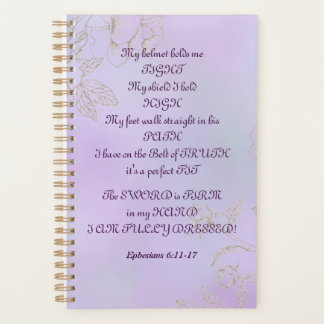 My helmet holds me
TIGHT
My shield I hold
HIGH
My feet walk straight in his
PATH
I have on the Belt of TRUTH
it's a perfect FIT
The SWORD is FIRM
in my HAND
I AM FULLY DRESSED!
Ephesians 6:11-17